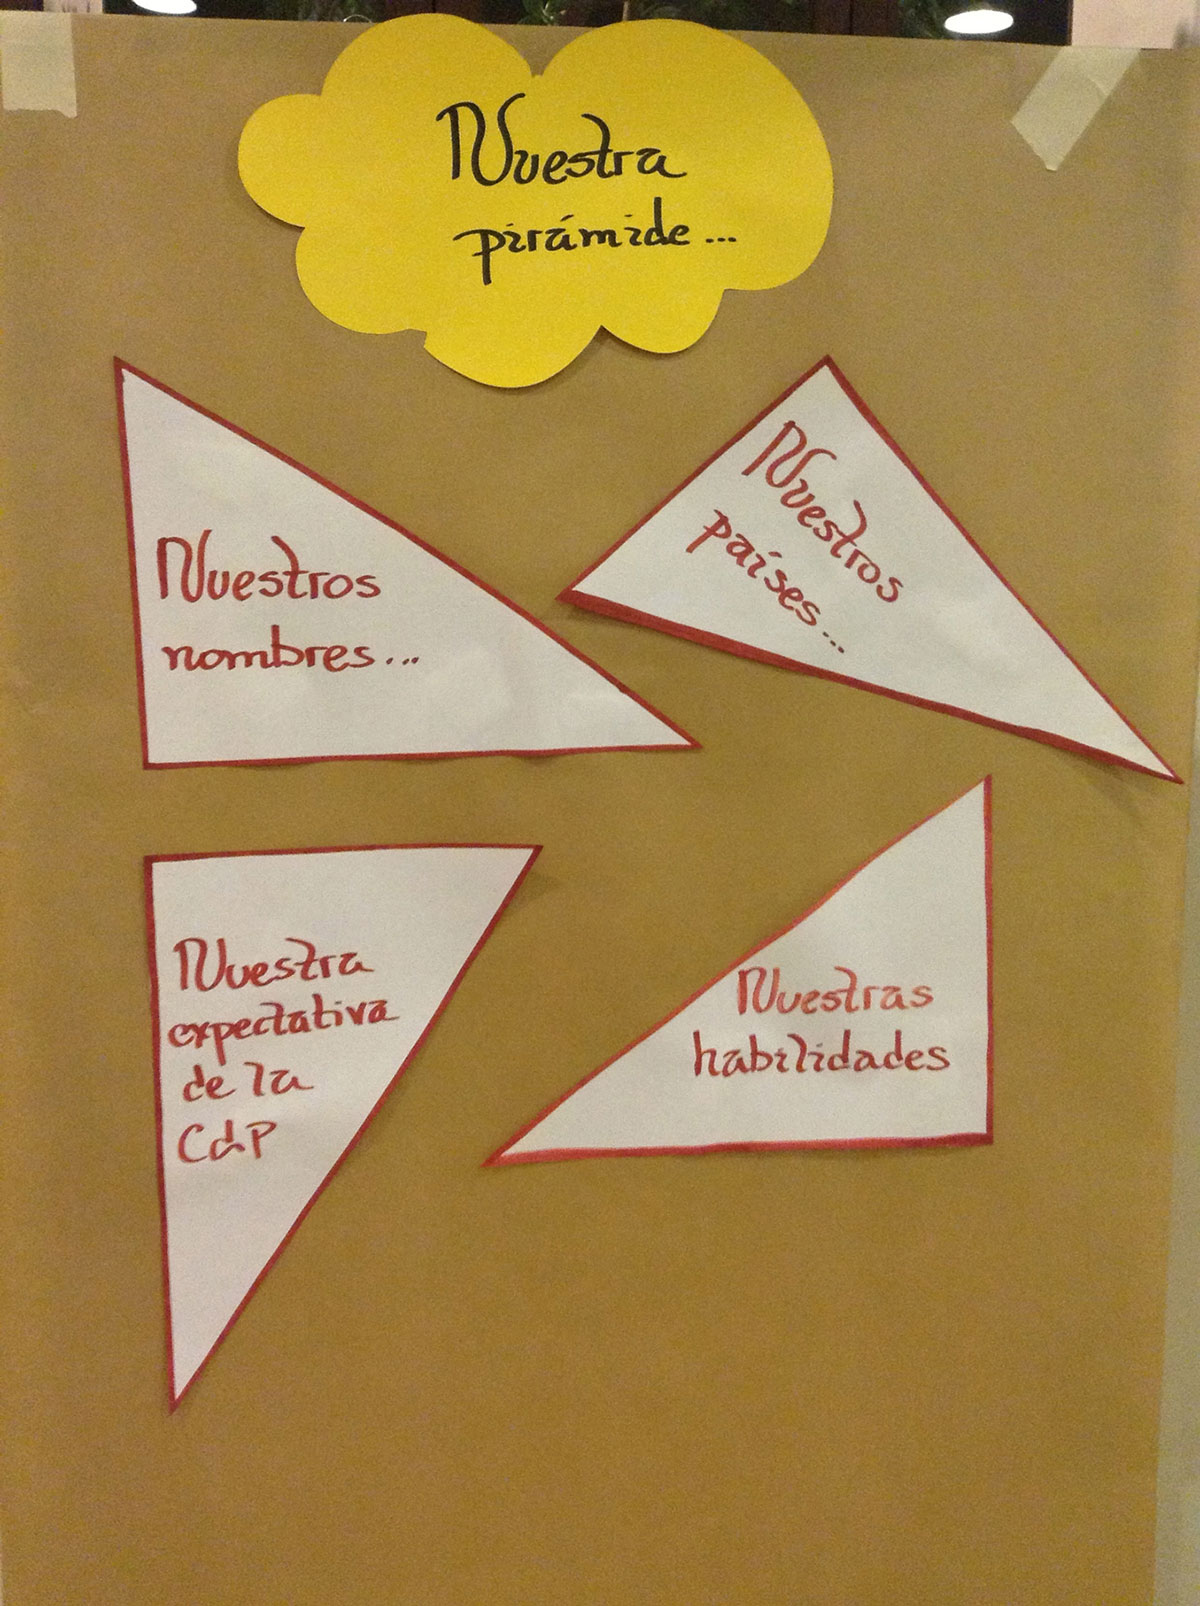 Nuestra
pirámide...
Nuestros
nombres...
Nuestros
países...
Nuestra
expectativa
de la
CdP
Nuestras
habilidades